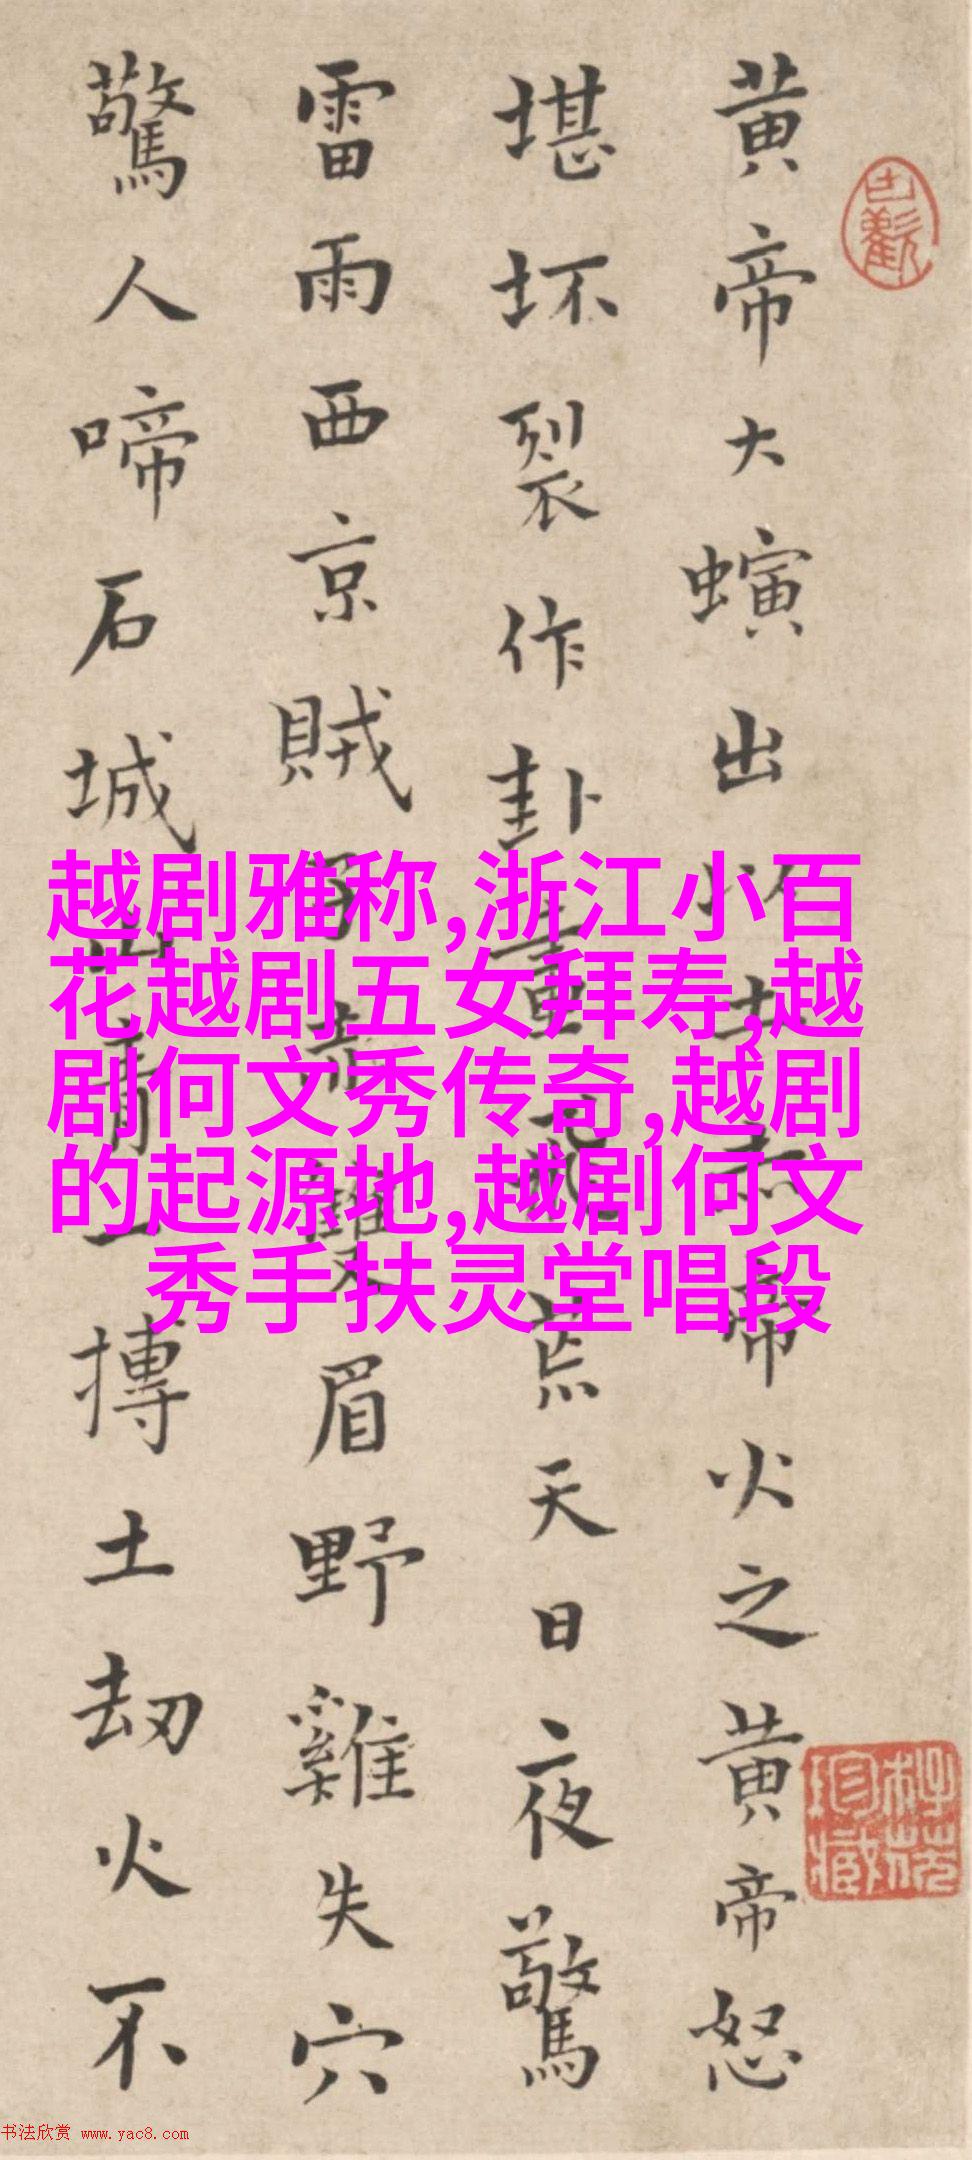 黄帝大螾出土赤帝火之黄帝怒
堪坏裂作卦天日夜驚
雷雨西京賊眉野雞失穴
驚人啼石城山青一摶土劫火不
越剧雅称,浙江小百
花越剧五女拜寿,越
剧何文秀传奇,越剧
的起源地,越剧何文
秀手扶灵堂唱段
书法欣赏 www.yac8.com